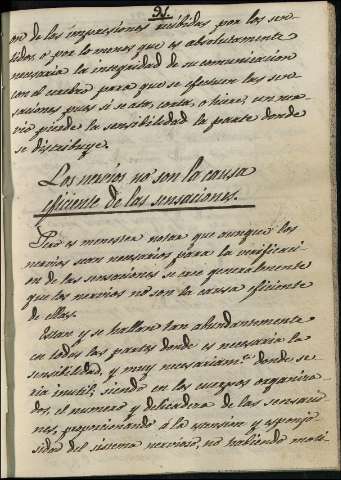 91.
on de las impresiones recibidas por los sen-
tidos, o por lo menos que es absolutamente
necesaria la integridad de su comunicacion
con el cerebro para que se efectuen las sen-
saciones pues si se ata, corta, o hiere, un ner-
vio pierde la sensibilidad la parte donde
se distribuye.
Los nervios no son la causa
eficiente de las sensaciones.
Pero es menester notar que aunque los
nervios sean necesarios para la verificaci-
on de las sensaciones se cree generalmente
que los nervios no son la causa eficiente
de ellas.
Estan y se hallan tan abundantemente
en todas las partes donde es necesaria la
sensibilidad, y muy necesariam.te donde se-
ria inutil; siendo en los cuerpos organiza-
dos, el numero y delicadeza de las sensacio-
nes, proporcionando á la estension y esponjo-
sidad del sistema nervioso, no habiendo moti-